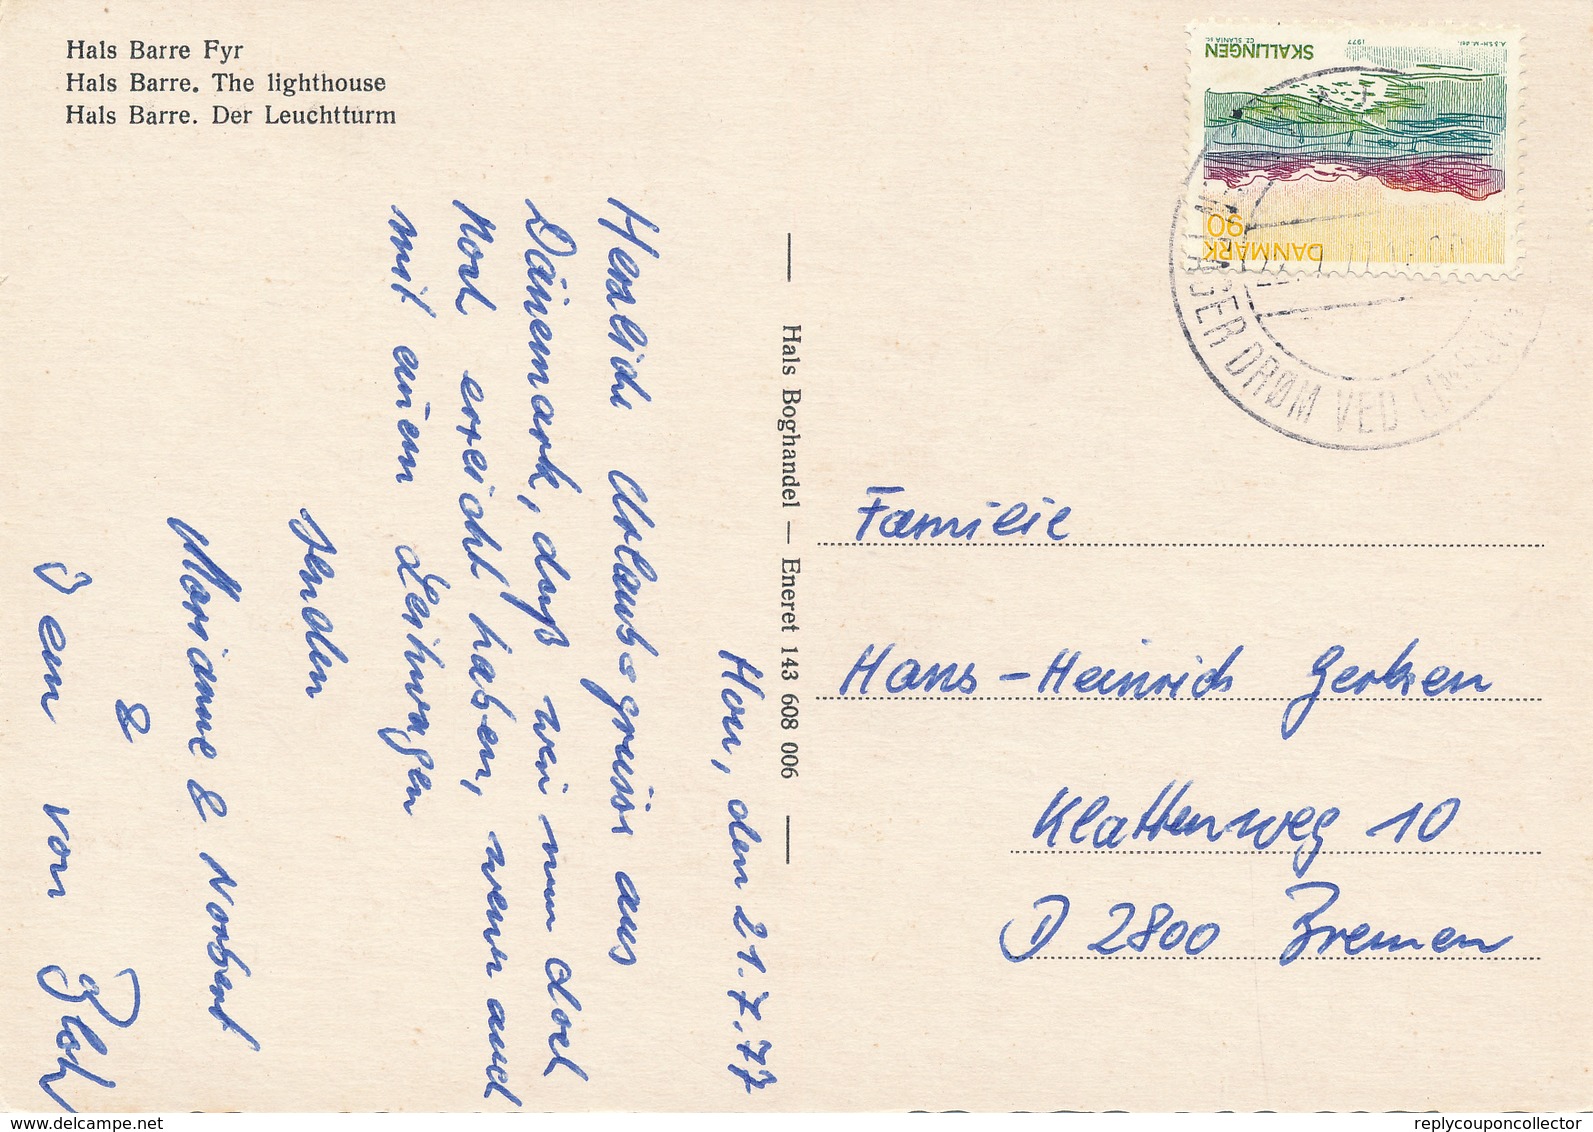 Hals Barre Fyr
Hals Barre. The lighthouse
Hals Barre. Der Leuchtturm
SKALLINGEN
1977
CZ. SLANIA SC.
DANMARK
90
DRØM VED
Hals Boghandel — Eneret 143 608 006
Hou, den 21.7.77
Herzliche Urlaubsgrüsse aus
Dänemark, daß wir nun doch
noch erreicht haben, wenn auch
mit einem Leihwagen
senden
Marianne & Norbert
&
von
Familie
Hans-Heinrich Gerken
Klattenweg 10
D 2800 Bremen
www.delcampe.net
replycouponcollector